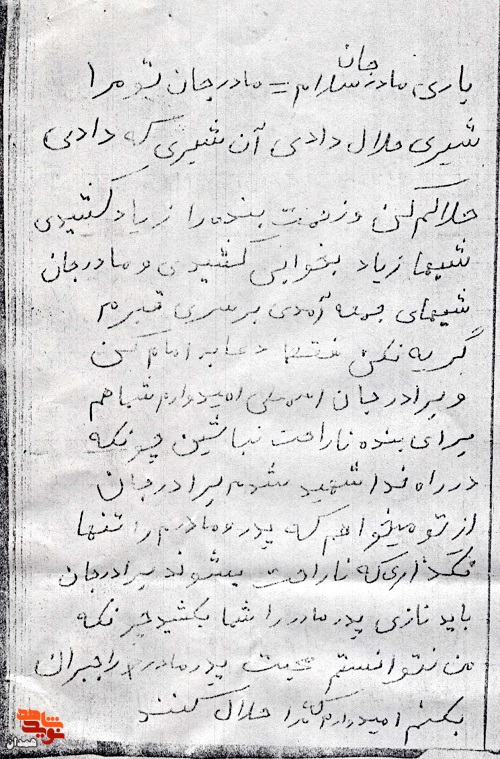 جان
یاری مادر سلام = مادر جان تو مرا
شیری حلال دادی آن شیری که دادی
حلالم کن و زحمت بنده را زیاد کشیدی
شبها زیاد بخوابی کشیدی و مادر جان
شبهای جمعه آمدی بر سری قبرم
گریه نکن فقط دعا به امام کن
و برادر جان امیدوارم شما هم
برای بنده ناراحت نباشین چونکه
در راه خدا شهید شدم برادر جان
از تو میخواهم که پدر و مادرم را تنها
نگذاری که ناراحت بشوند برادر جان
باید نازی پدر مادر را شما بکشید چونکه
من نتوانستم محبت پدر مادرم را جبران
بکنم امیدوارم که مرا حلال کنند
نوید شاهد
همدان